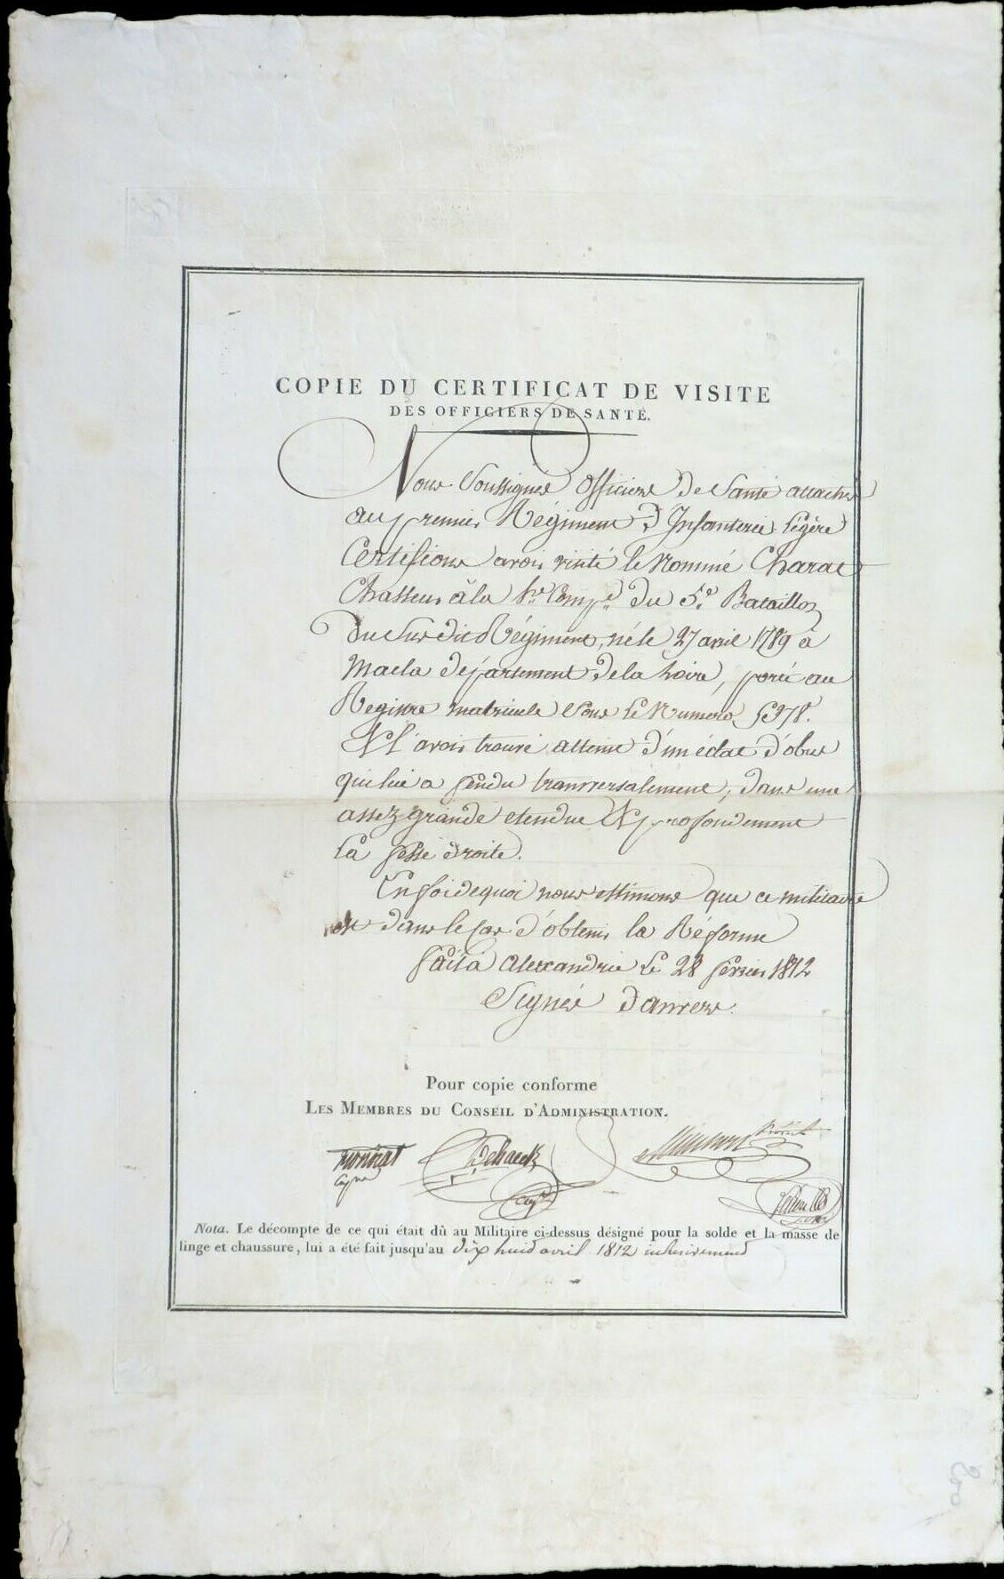 COPIE DU CERTIFICAT DE VISITE
DES OFFICIERS DE SANTÉ.
Nous Soussignés Officiers De Santé attachés
au premier Régiment D'Infanterie Légère
Certifions avoir visité le Nommé Charat
Chasseur à la Compe du 5e Bataillon
Du Sus dit Régiment, né le 27 avril 1789 à
Macla département de la Loire, porté au
Registre matricule Sous le Numero 5378.
& l'avoir trouvé atteint d'un éclat d'obus
qui lui a fendu transversalement, dans une
assez grande etendue & profondement
La fesse droite.
En foi de quoi nous estimons que ce militaire
est dans le cas d'obtenir la Réforme
fait à Alexandrie le 28 février 1812
Signé Danvers.
Pour copie conforme
LES MEMBRES DU CONSEIL D'ADMINISTRATION.
Debaeck
Nota. Le décompte de ce qui était dû au Militaire ci-dessus désigné pour la solde et la masse de
linge et chaussure, lui a été fait jusqu'au dix huit avril 1812 inclusivement